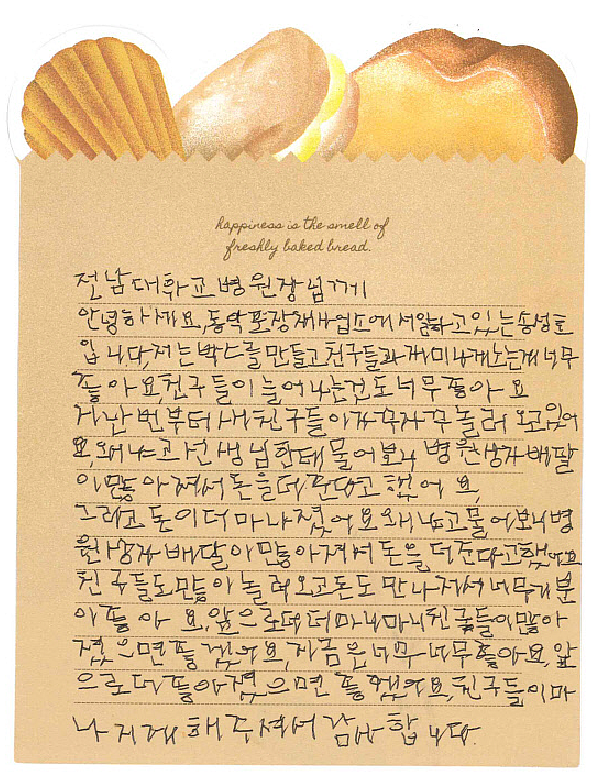 happiness is the smell of
freshly baked bread.
전남대학교병원장님께
안녕하세요, 동박포장재사업소에서일하고있는송성호
입니다, 저는박스를만들고친구들과재미나게노는게너무
좋아요, 친구들이늘어나는건도너무좋아요
저난번부터새친구들이자꾸자꾸놀러오고있어
요, 왜냐고선생님한테물어보니병원상자배달
이많아져서돈을더준다고했어요,
그리고돈이더마나졌어요왜냐고물어보니병
원상자배달이많아져서돈을더준다고했어요
친구들도만이놀러오고돈도만나져서너무기분
이좋아요, 앞으로더더마니마니친구들이많아
졌으면좋겠어요, 지금은너무너무좋아요, 앞
으로더좋아졌으면좋겠어요, 친구들이마
나지게해주셔서감사합니다.